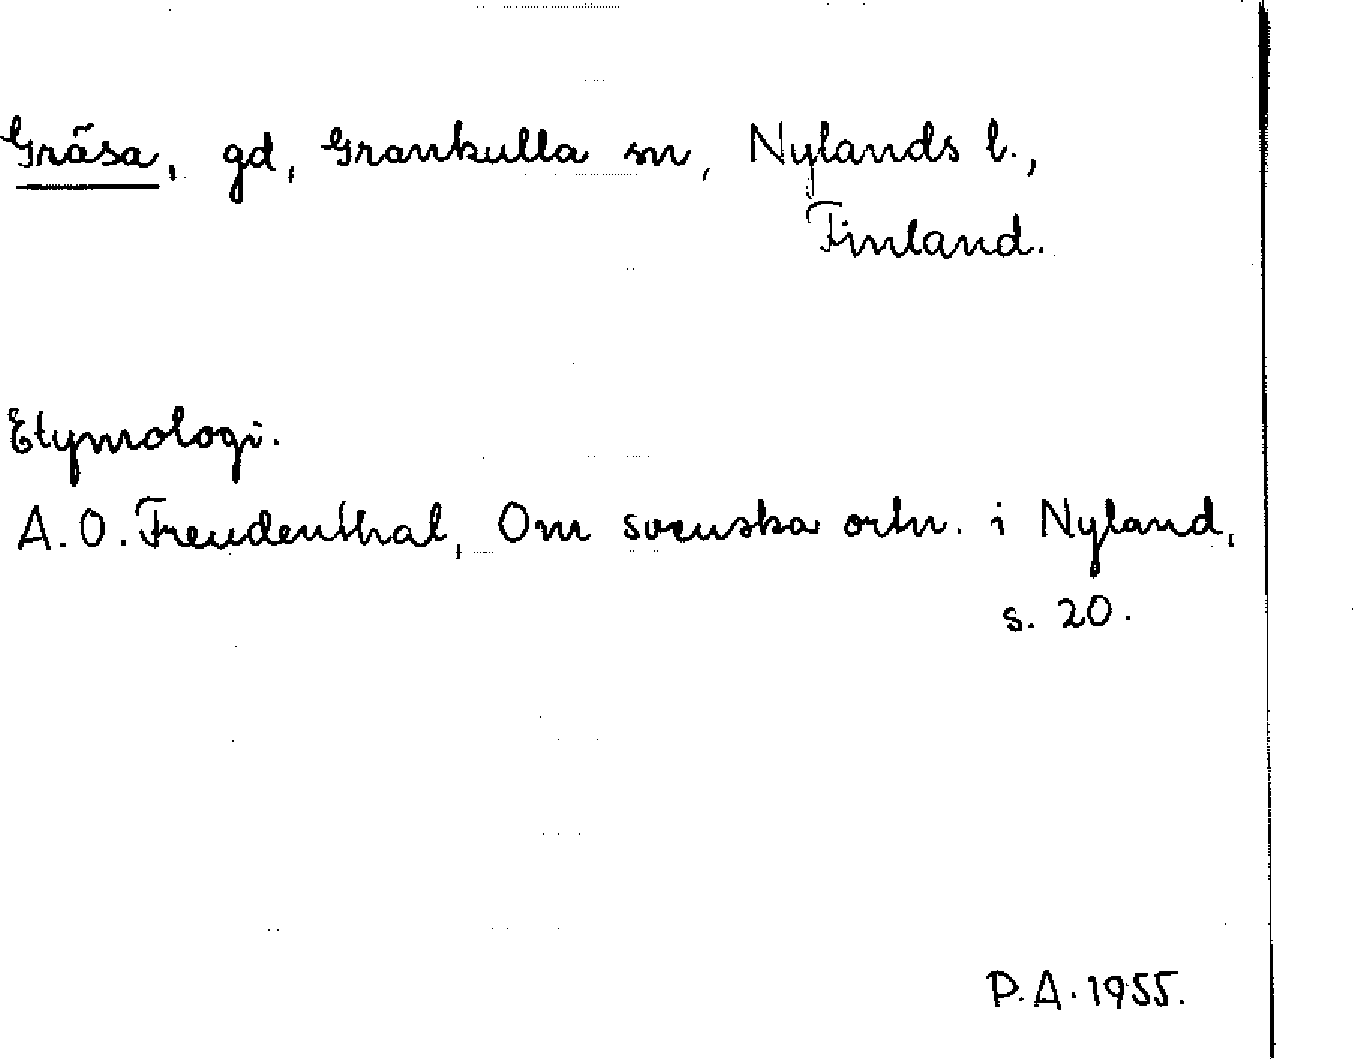 Gräsa, gd, Grankulla sn, Nylands l.,
Finland.
Etymologi.
A.O. Freudenthal, Om svenska ortn. i Nyland,
s. 20.
P.A. 1955.